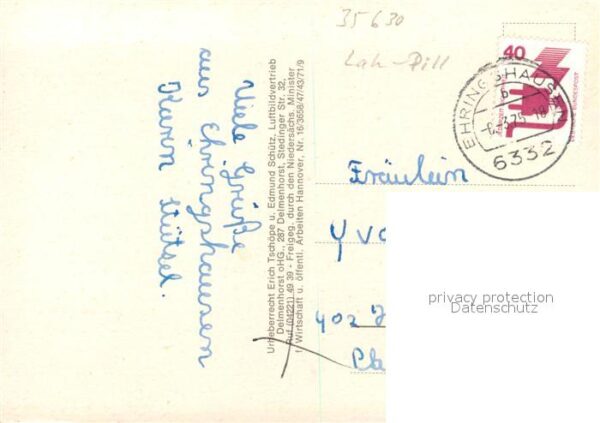 Viele Grüße
aus Ehringshausen
Karin
Urheberrecht Erich Tschöpe u. Edmund Schütz, Luftbildvertrieb
Delmenhorst oHG., 287 Delmenhorst, Stedinger Str. 32,
Ruf (04221) 49 39 - Freigeg. durch den Niedersächs. Minister
f. Wirtschaft u. öffentl. Arbeiten Hannover, Nr. 16/3658/47/43/71/9
35630
Lah-Dill
40
DEUTSCHE BUNDESPOST
EHRINGSHAUSEN
b
-6.-3.75-18
6332
Fräulein
privacy protection
Datenschutz